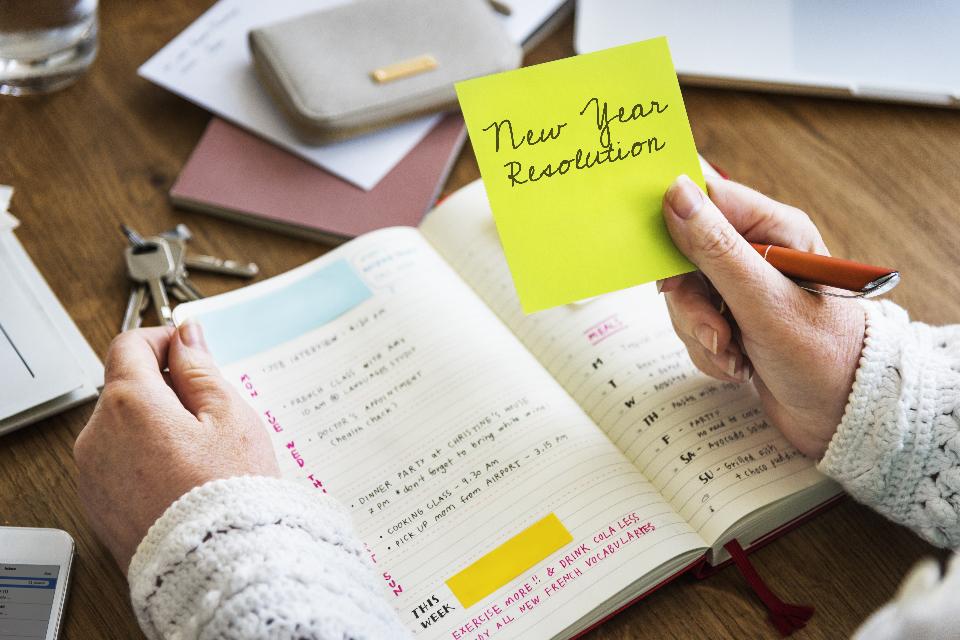 New Year
Resolution
JOB INTERVIEW - 4:30 PM
MON
TUE
WED
• FRENCH CLASS WITH AMY
10 AM @ LANGUAGES STUDIO
• DOCTOR'S APPOINTMENT
(health check)
• DINNER PARTY at CHRISTINE'S HOUSE
7 PM *don't forget to bring white wine
• COOKING CLASS - 9.30 AM
• PICK UP mom from AIRPORT - 3.15 PM
SUN
THIS
WEEK
EXERCISE MORE!! & DRINK COLA LESS
ALL NEW FRENCH VOCABULARIES
MEALS
M
T
W
TH - Pasta
F - PARTY
no need to cook
SA - Avocado Salad
SU - Grilled fish
+ choco